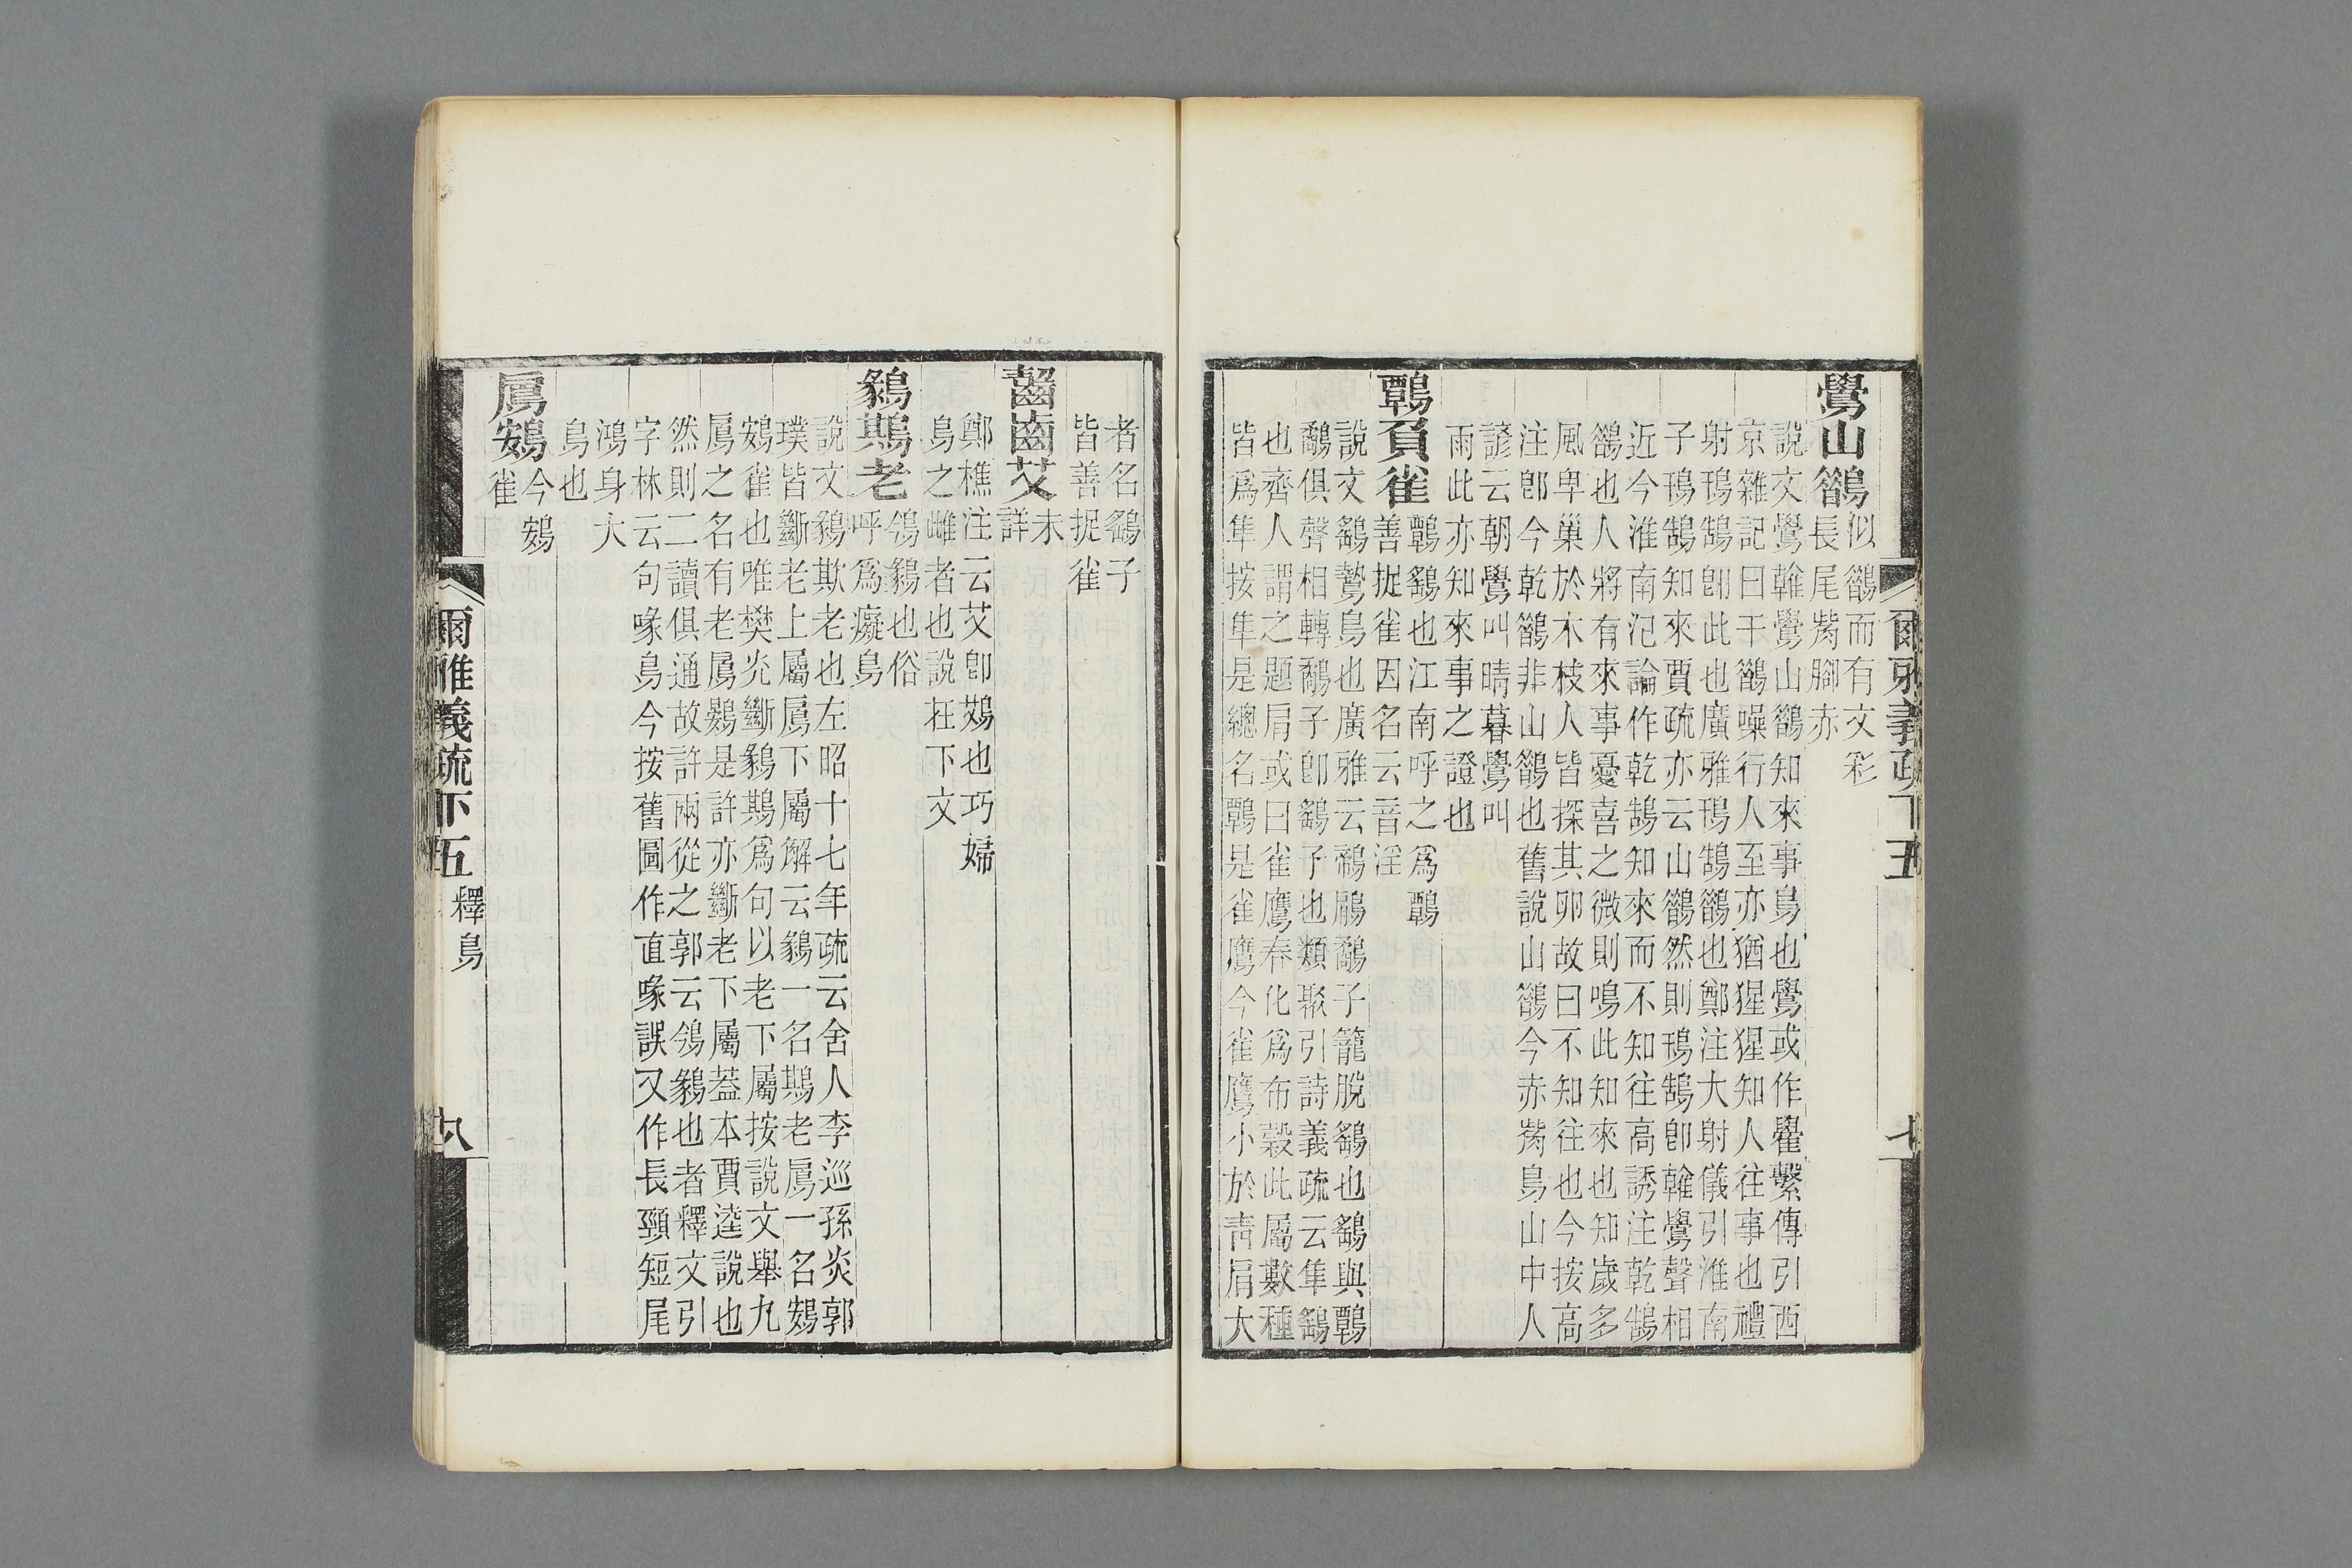 爾雅義疏下五
七
鷽山鵲
似鵲而有文彩
長尾觜腳赤
說文鷽雗鷽山鵲知來事鳥也鷽或作雤繫傳引西
京雜記曰干鵲噪行人至亦猶猩猩知人往事也禮
射鳱鵠卽此也廣雅鳱鵠鵲也鄭注大射儀引淮南
子鳱鵠知來賈疏亦云山鵲然則鳱鵠卽雗鷽聲相
近今淮南氾論作乾鵠知來而不知往高誘注乾鵠
鵲也人將有來事憂喜之微則鳴此知來也知歲多
風卑巢於木枝人皆探其卵故曰不知往也今按高
注卽今乾鵲非山鵲也舊說山鵲今赤觜鳥山中人
諺云朝鷽叫晴暮鷽叫
雨此亦知來事之證也
鷣負雀
鷣鷂也江南呼之爲鷣
善捉雀因名云音淫
說文鷂鷙鳥也廣雅云鶙鵳鷸子籠脫鷂也鷂與鷣
鷸俱聲相轉鷸子卽鷂子也類聚引詩義疏云隼鷂
也齊人謂之題肩或曰雀鷹春化爲布穀此屬數種
皆爲隼按隼是總名鷣是雀鷹今雀鷹小於青肩大
者名鷂子
皆善捉雀
齧齒艾
未
詳
鄭樵注云艾卽鴱也巧婦
鳥之雌者也說在下文
鶨䳢老
鳹鶨也俗
呼爲癡鳥
說文鶨欺老也左昭十七年疏云舍人李巡孫炎郭
璞皆斷老上屬鳸下屬解云鶨一名䳢老鳸一名鴳
鴳雀也唯樊光斷鶨䳢爲句以老下屬按說文舉九
鳸之名有老鳸鷃是許亦斷老下屬葢本賈逵說也
然則二讀俱通故許兩從之郭云鳹鶨也者釋文引
字林云句喙鳥今按舊圖作直喙誤又作長頸短尾
鴻身大
鳥也
鳸鴳
今鴳
雀
爾雅義疏下五 釋鳥